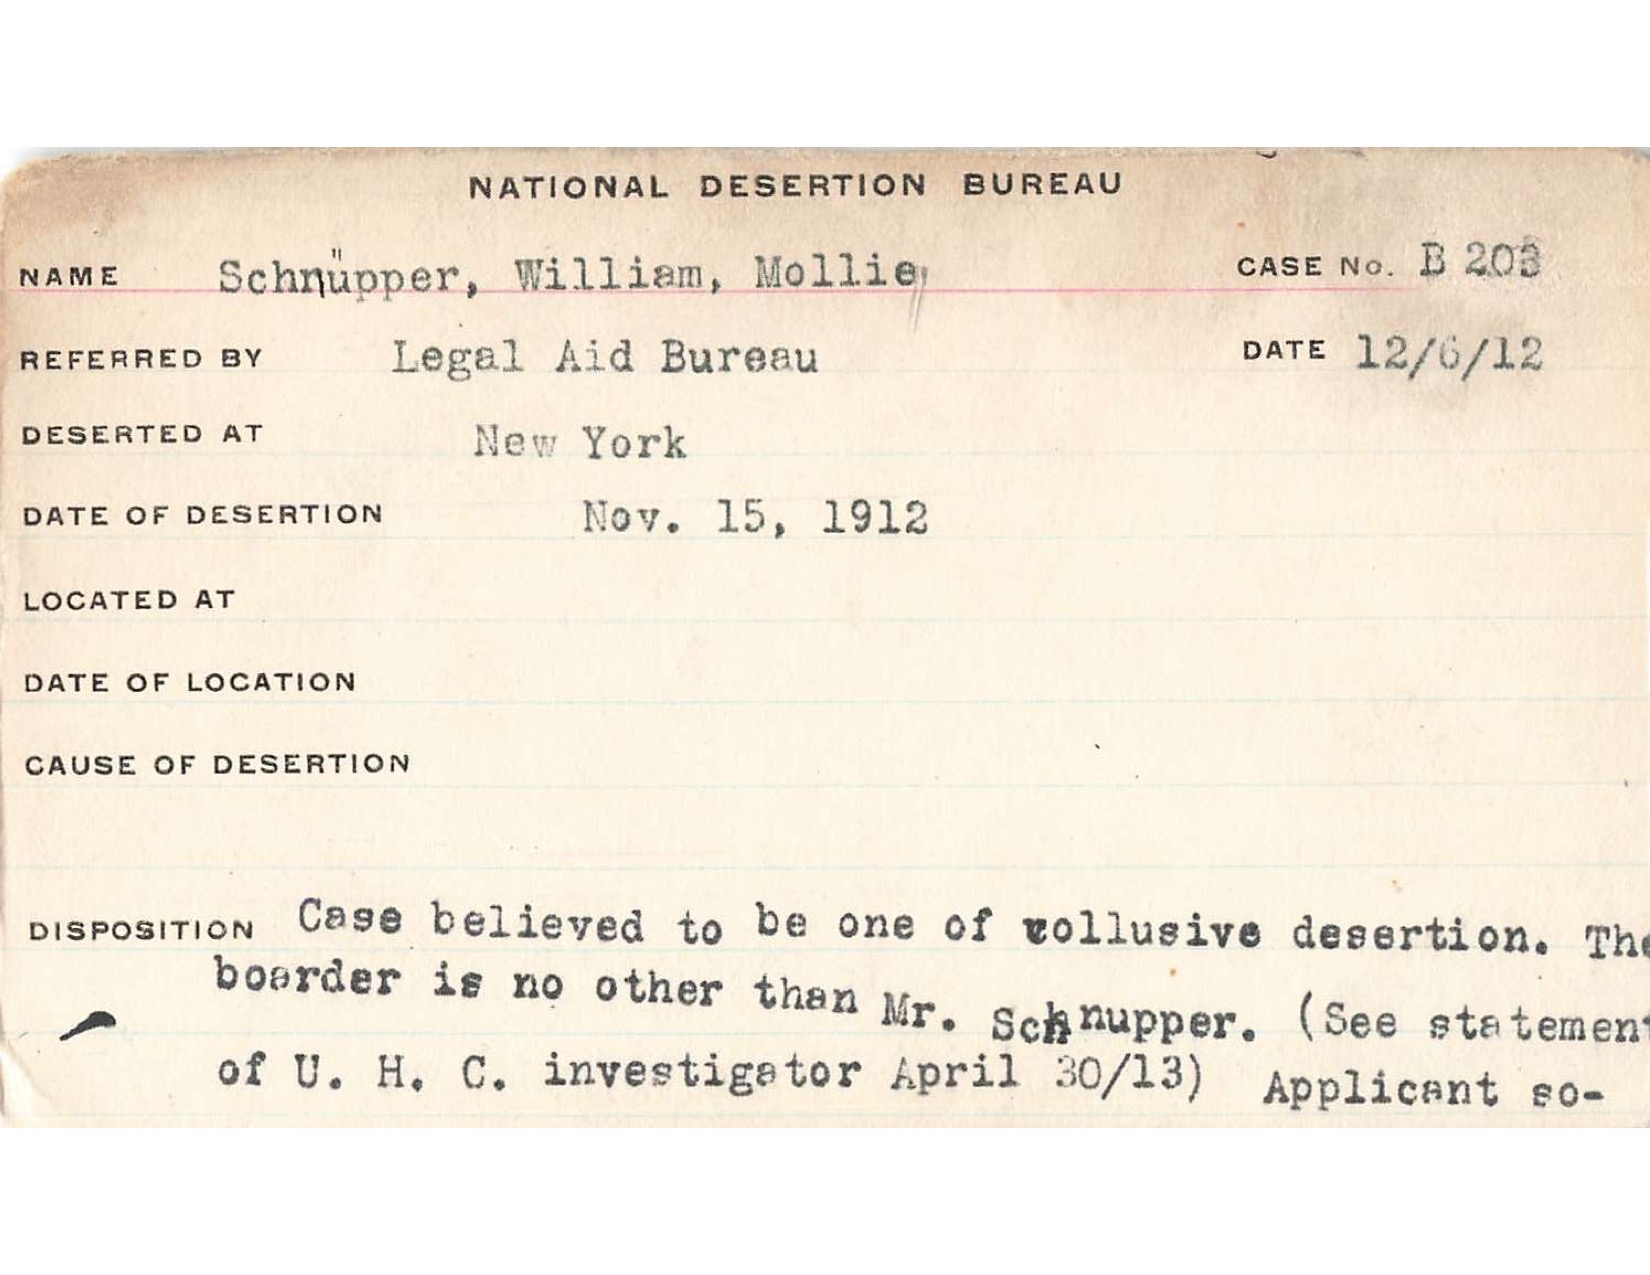 NATIONAL DESERTION BUREAU
NAME Schnüpper, William, Mollie, CASE No. B 203
REFERRED BY Legal Aid Bureau DATE 12/6/12
DESERTED AT New York
DATE OF DESERTION Nov. 15, 1912
LOCATED AT
DATE OF LOCATION
CAUSE OF DESERTION
DISPOSITION Case believed to be one of collusive desertion. The
boarder is no other than Mr. Schnupper. (See statement
of U. H. C. investigator April 30/13) Applicant so-